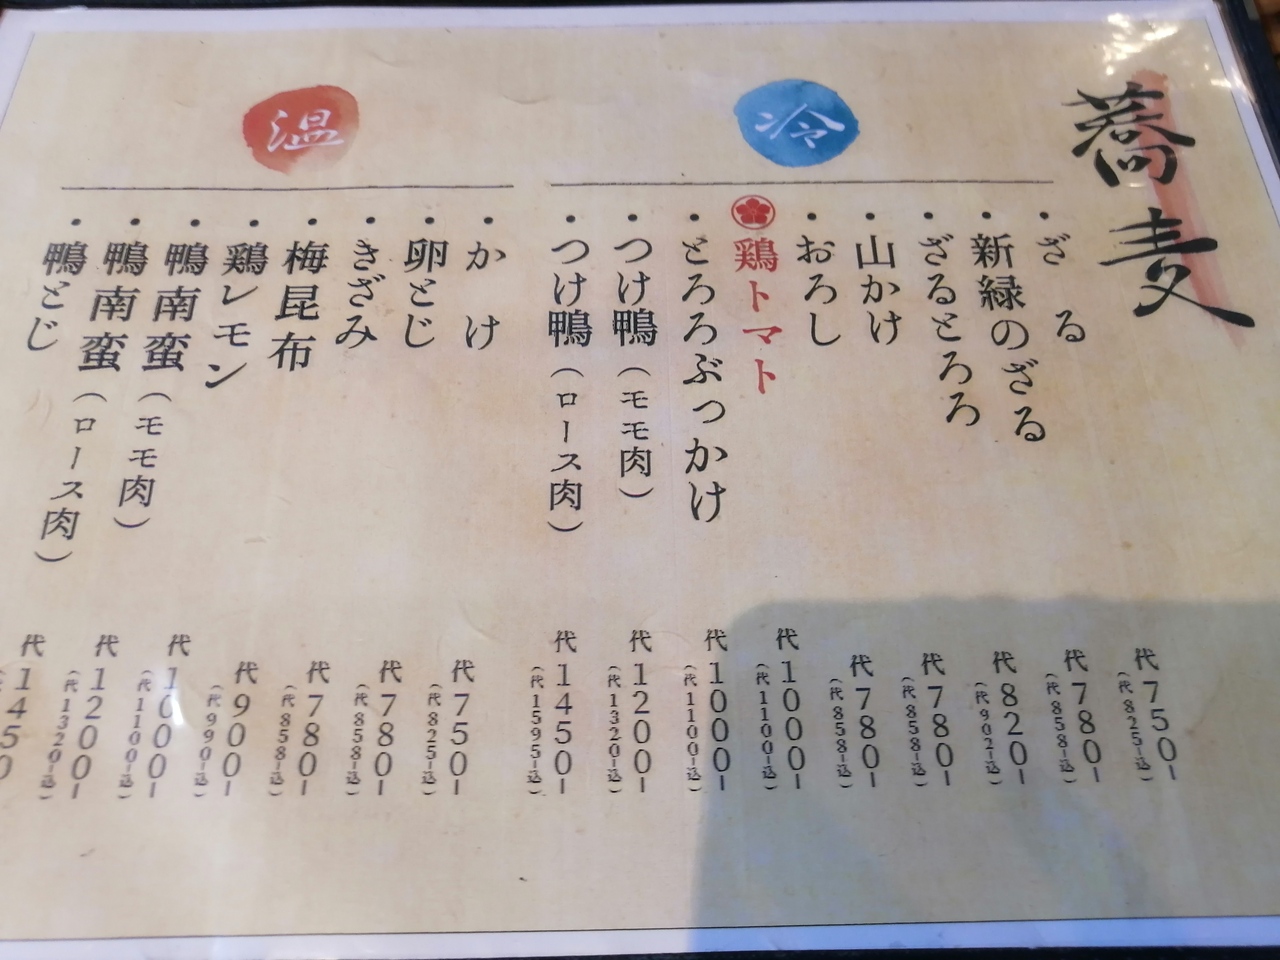 蕎麦
冷
・ざる 代750-
（代825-込）
・新緑のざる 代780-
（代858-込）
・ざるとろろ 代820-
（代902-込）
・山かけ 代780-
（代858-込）
・おろし 代780-
（代858-込）
鶏トマト 代1000-
（代1100-込）
・とろろぶっかけ 代1000-
（代1100-込）
・つけ鴨（モモ肉） 代1200-
（代1320-込）
・つけ鴨（ロース肉） 代1450-
（代1595-込）
温
・かけ 代750-
（代825-込）
・卵とじ 代780-
（代858-込）
・きざみ 代780-
（代858-込）
・梅昆布 代900-
（代990-込）
・鶏レモン 代1000-
（代1100-込）
・鴨南蛮（モモ肉） 代1200-
（代1320-込）
・鴨南蛮（ロース肉） 代1450
・鴨とじ